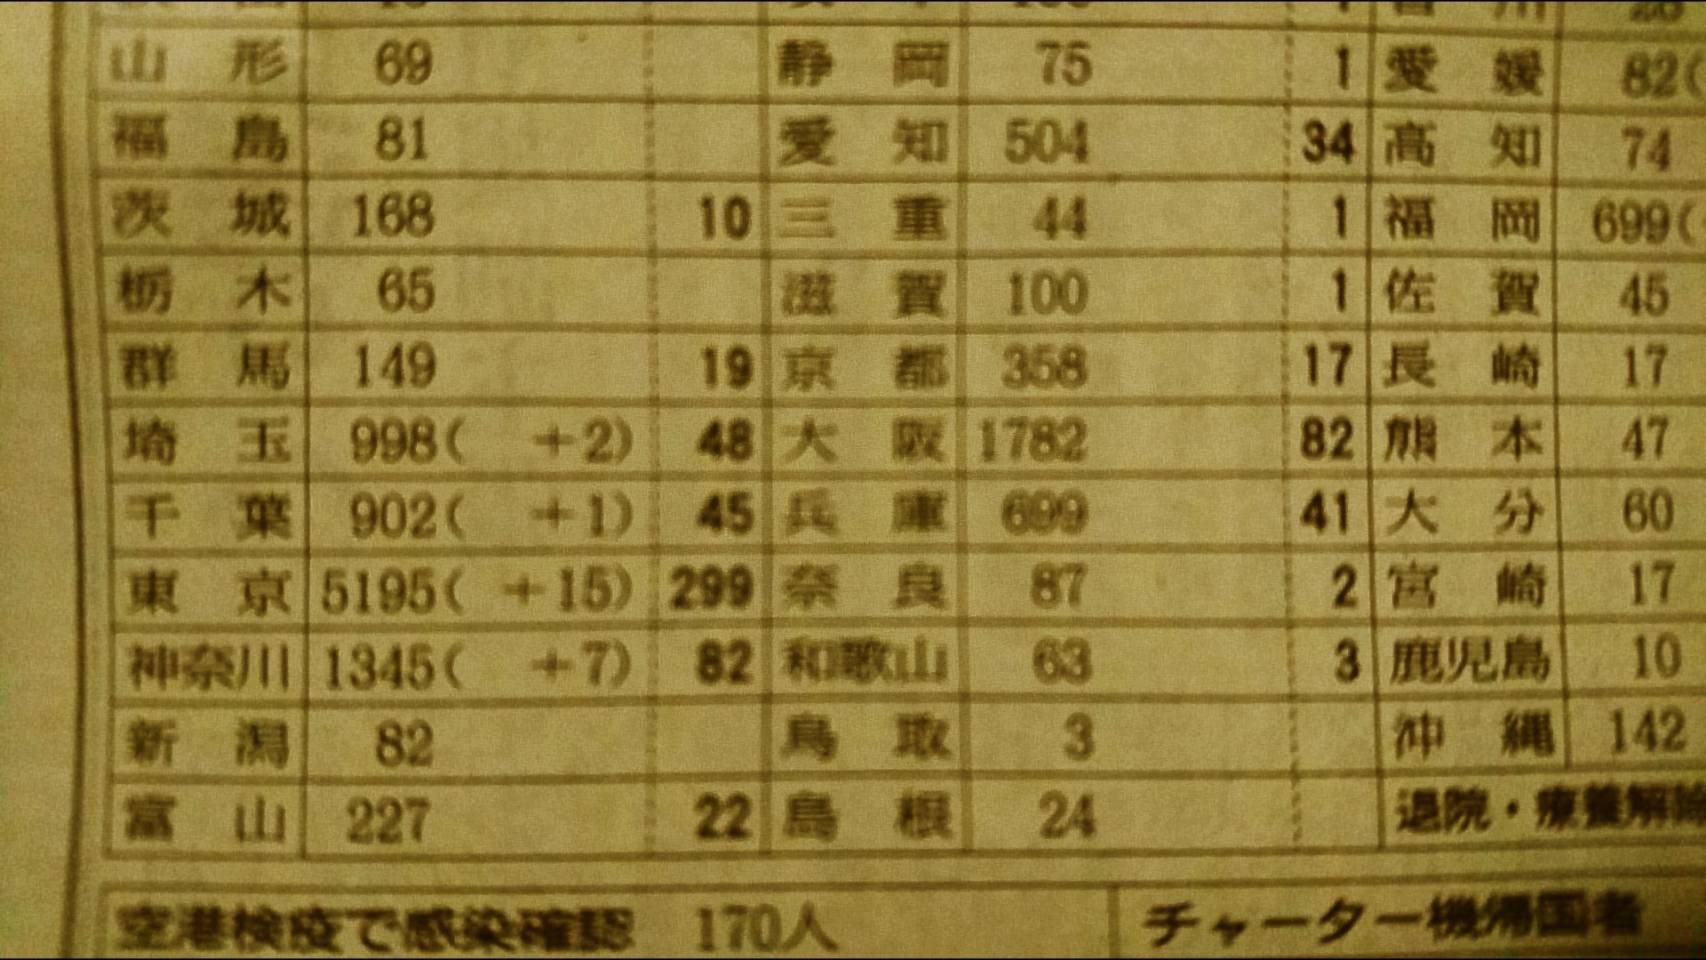 山形 69 静岡 75 1 愛媛 82(
福島 81 愛知 504 34 高知 74
茨城 168 10 三重 44 1 福岡 699(
栃木 65 滋賀 100 1 佐賀 45
群馬 149 19 京都 358 17 長崎 17
埼玉 998( +2) 48 大阪 1782 82 熊本 47
千葉 902( +1) 45 兵庫 699 41 大分 60
東京 5195( +15) 299 奈良 87 2 宮崎 17
神奈川 1345( +7) 82 和歌山 63 3 鹿児島 10
新潟 82 鳥取 3 沖縄 142
富山 227 22 島根 24 退院・療養解除
空港検疫で感染確認 170人 チャーター機帰国者